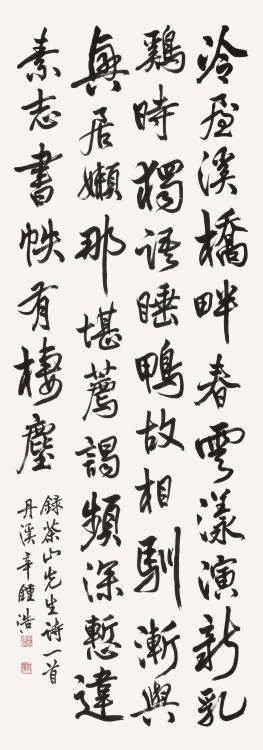 冷屋溪橋畔春雲漾演新乳
鷄時獨語睡鴨故相馴漸與
興居嬾那堪薦謁頻深慙違
素志書帙有棲塵
錄茶山先生詩一首
丹溪辛鍾浩